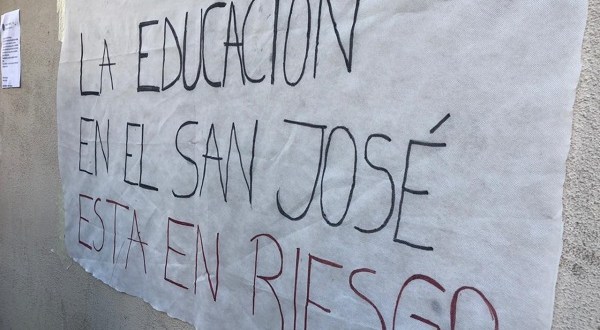 LA EDUCACION
EN EL SAN JOSÉ
ESTA EN RIESGO